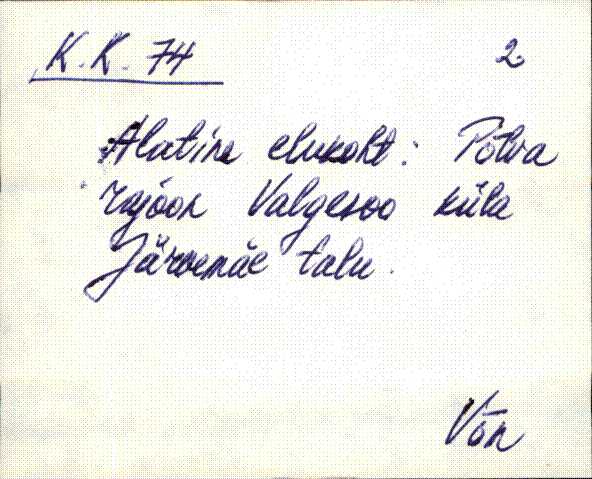 K.K. 74 2.
Alatine elukoht: Põlva
rajoon Valgesoo küla
Järvemäe talu.
Võn